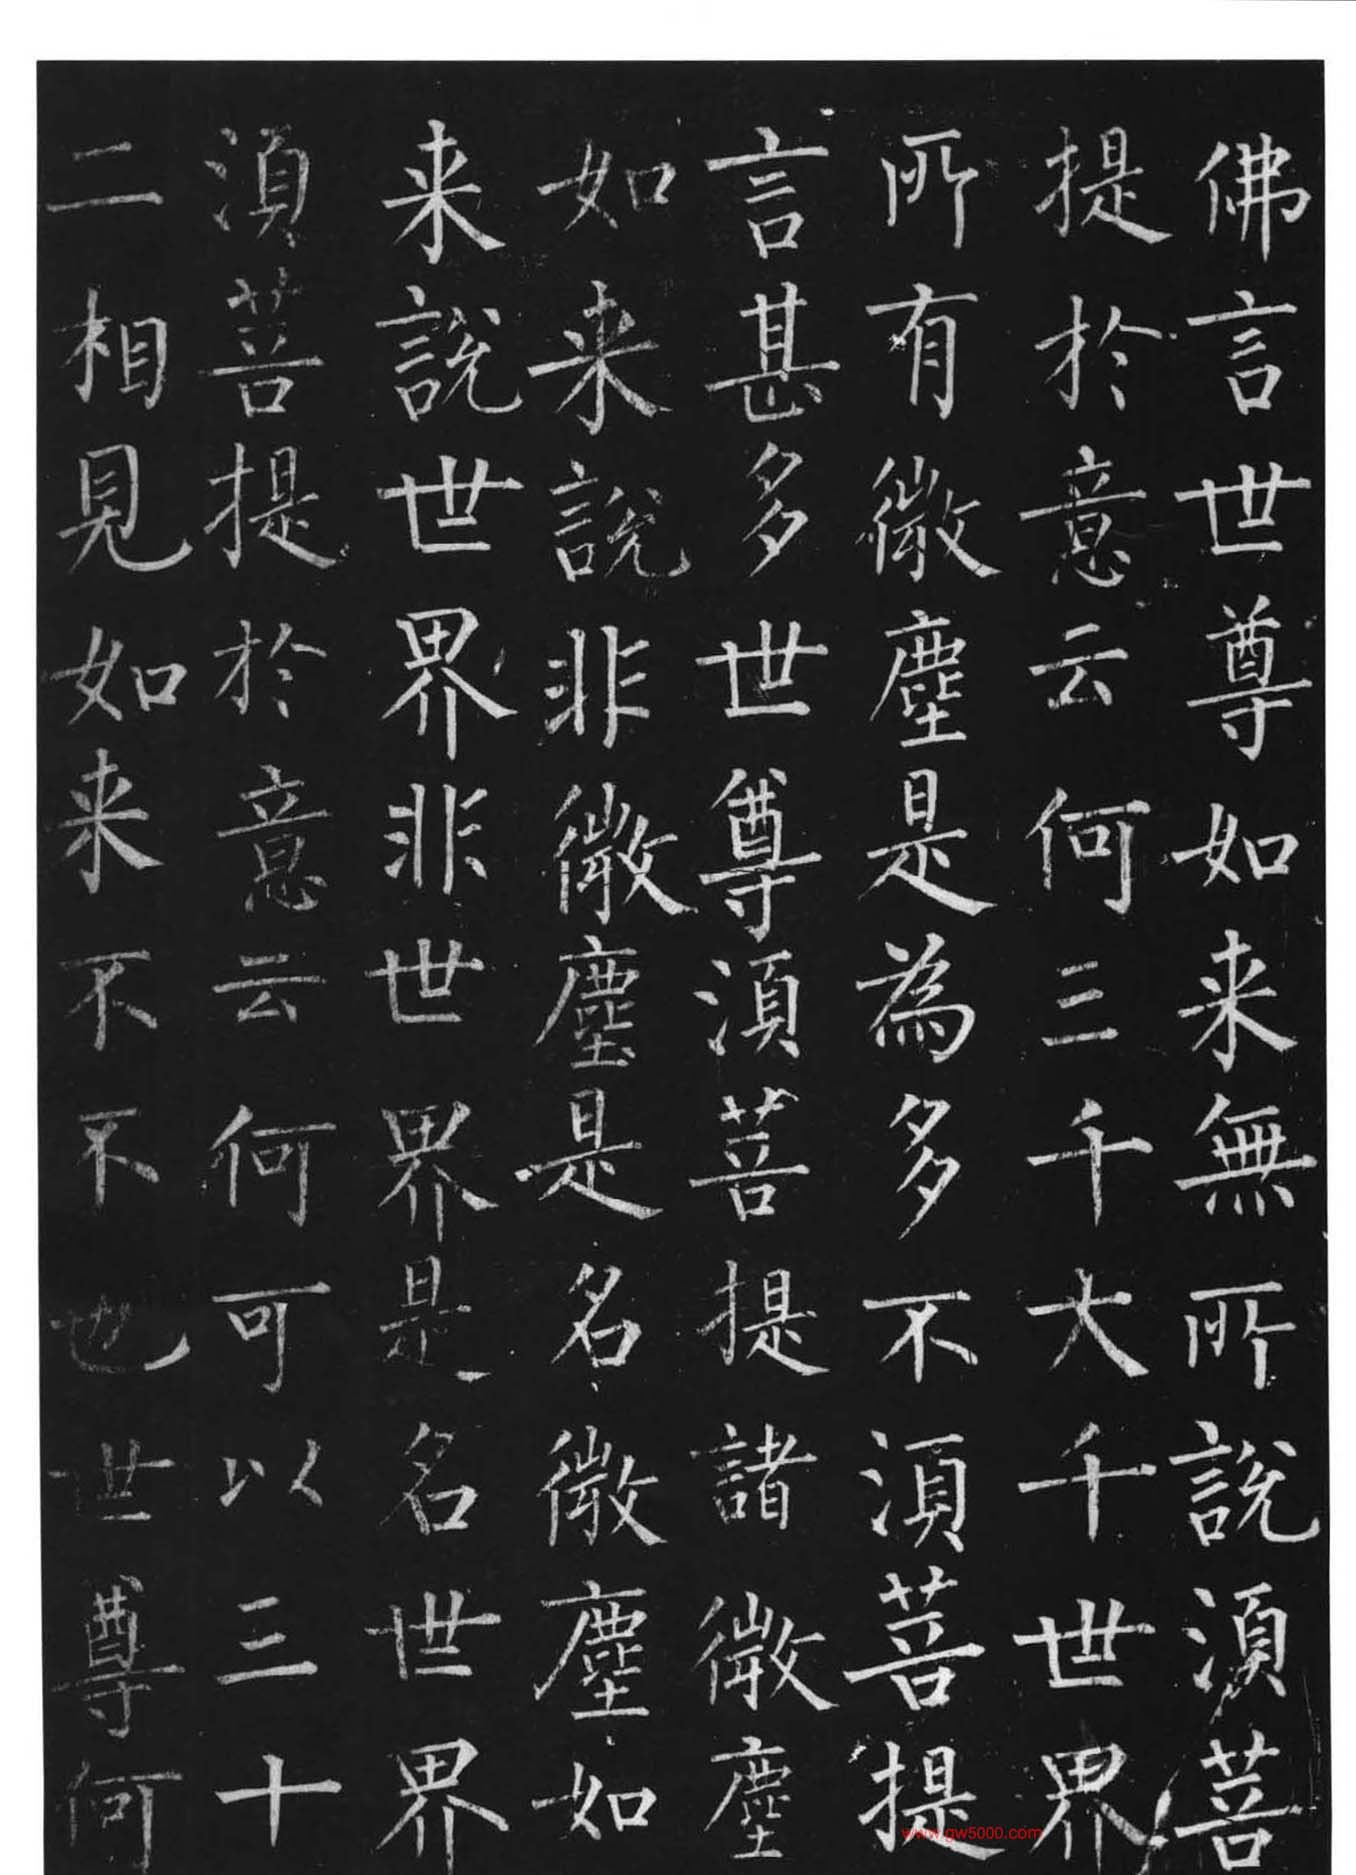 佛言世尊如来無所說湏菩
提於意云何三千大千世界
所有微塵是為多不湏菩提
言甚多世尊湏菩提諸微塵
如来說非微塵是名微塵如
来說世界非世界是名世界
湏菩提於意云何可以三十
二相見如来不不也世尊何
www.gw5000.com